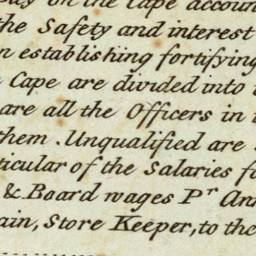 on the Cape accoun
the Safety and interest
n establishing fortifying
Cape are divided into
are all the Officers in
them. Unqualified are
ticular of the Salaries fo
& Board wages Pr Ann
ain, Store Keeper, to the